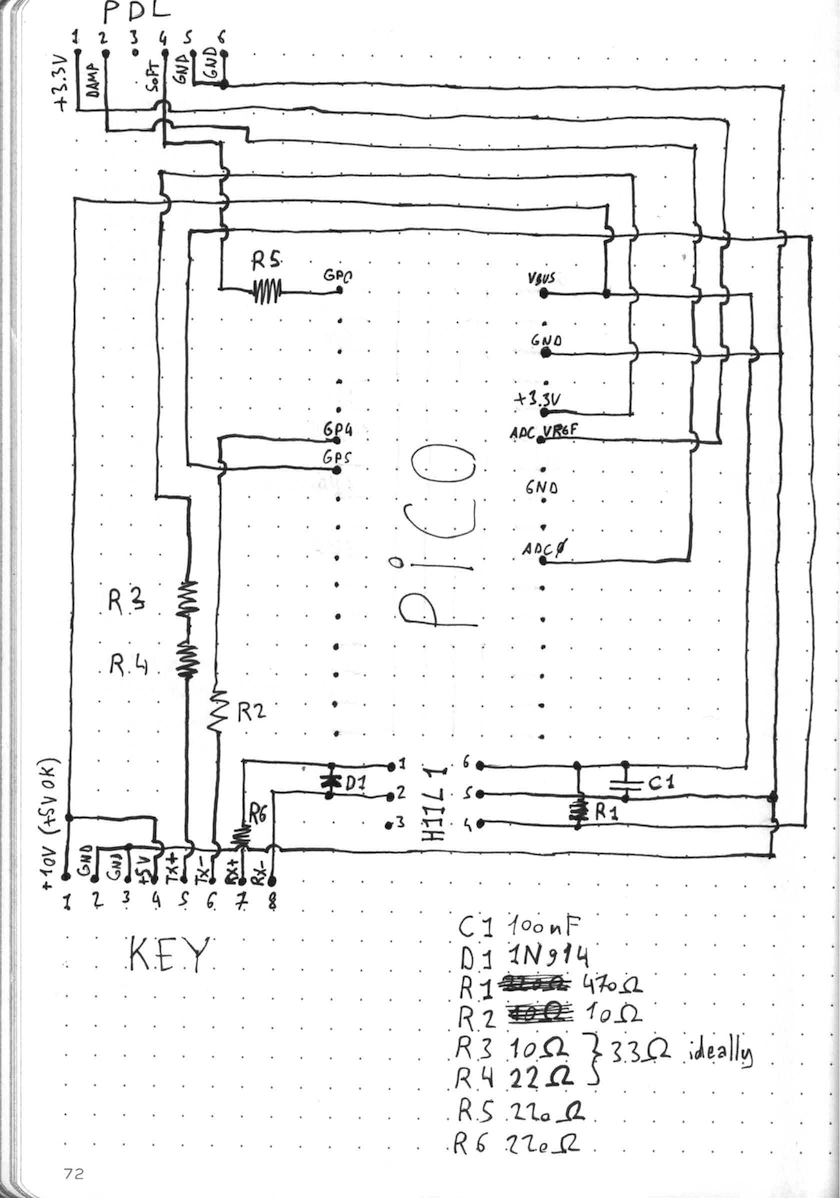 PDL
1 2 3 4 5 6
+3.3V
DAMP
SOFT
GND
GND
R5
GP0
VBUS
GND
+3.3V
GP4
ADC_VREF
GP5
GND
ADC0
Pico
R3
R4
R2
1
6
D1
C1
2
5
R6
R1
3
4
H11L1
+10V (+5V OK)
GND
GND
+5V
TX+
TX-
RX+
RX-
1 2 3 4 5 6 7 8
KEY
C1 100nF
D1 1N914
R1 470Ω
R2 10Ω
R3 10Ω } 33Ω ideally
R4 22Ω
R5 220Ω
R6 220Ω
72